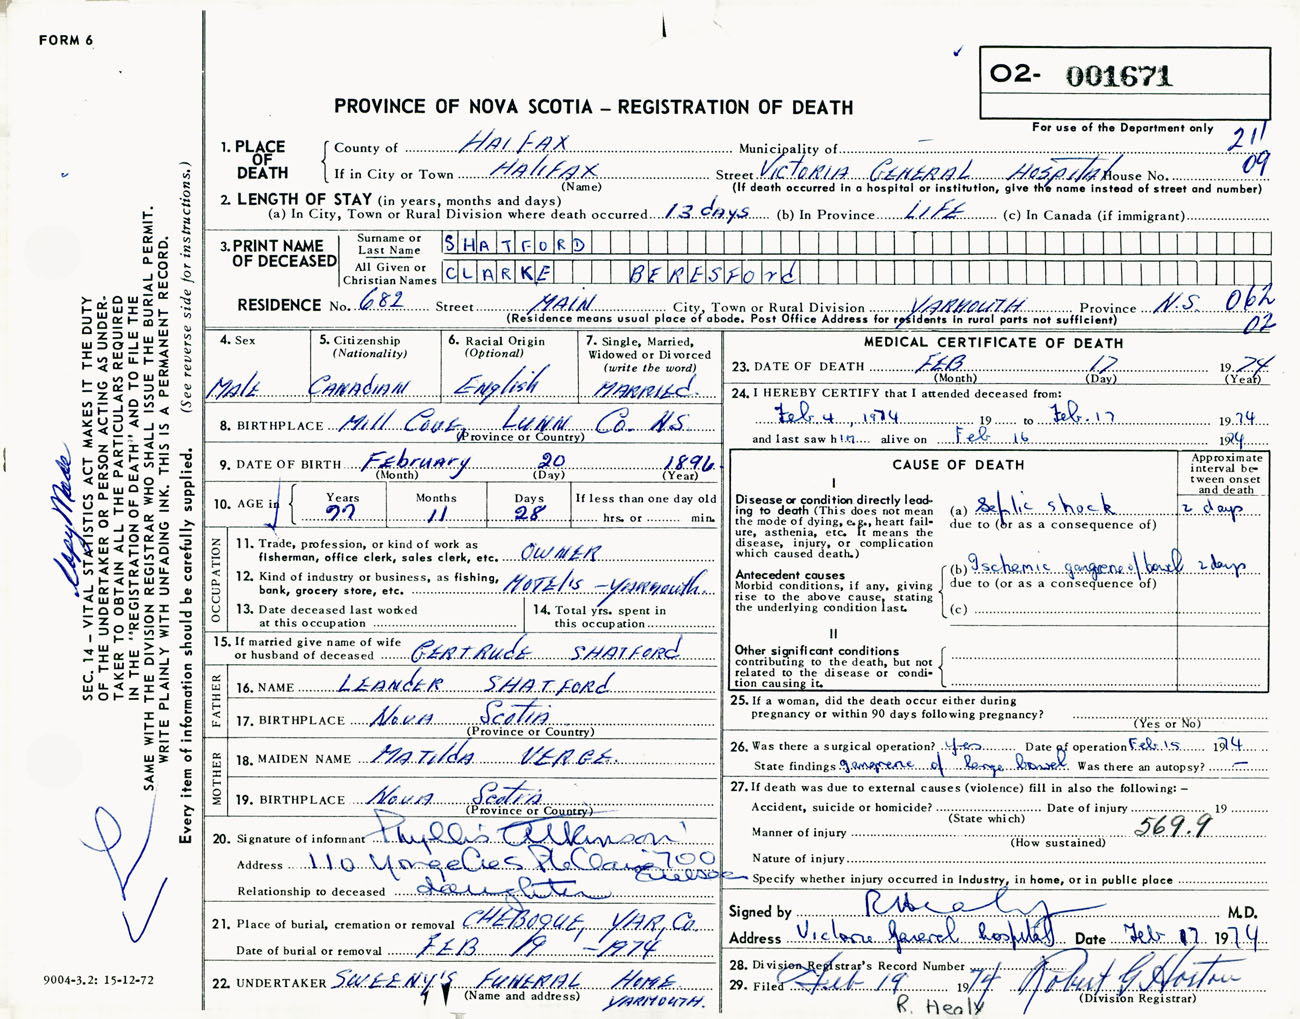 FORM 6
O2- 001671
PROVINCE OF NOVA SCOTIA – REGISTRATION OF DEATH
For use of the Department only
21
09
1. PLACE OF DEATH
County of HALIFAX Municipality of –
If in City or Town HALIFAX Street VICTORIA GENERAL HOSPITAL House No.
(Name) (If death occurred in a hospital or institution, give the name instead of street and number)
2. LENGTH OF STAY (in years, months and days)
(a) In City, Town or Rural Division where death occurred 13 days (b) In Province LIFE (c) In Canada (if immigrant)
3. PRINT NAME OF DECEASED
Surname or Last Name SHATFORD
All Given or Christian Names CLARKE BERESFOrd
RESIDENCE No. 682 Street MAIN City, Town or Rural Division YARMOUTH Province N.S. 062
(Residence means usual place of abode. Post Office Address for residents in rural parts not sufficient) 02
4. Sex
Male
5. Citizenship
(Nationality)
CANADIAN
6. Racial Origin
(Optional)
English
7. Single, Married,
Widowed or Divorced
(write the word)
MARRIEd.
8. BIRTHPLACE Mill Cove LUNN Co. N.S.
(Province or Country)
9. DATE OF BIRTH February 20 1896
(Month) (Day) (Year)
10. AGE in
Years Months Days If less than one day old
77 11 28 hrs. or min.
OCCUPATION
11. Trade, profession, or kind of work as
fisherman, office clerk, sales clerk, etc. OWNER
12. Kind of industry or business, as fishing,
bank, grocery store, etc. MOTELS – YARMOUTH.
13. Date deceased last worked
at this occupation
14. Total yrs. spent in
this occupation
15. If married give name of wife
or husband of deceased GERTRUDE SHATFORD
FATHER
16. NAME LEANdER SHATFORd
17. BIRTHPLACE NOVA SCOTIA
(Province or Country)
MOTHER
18. MAIDEN NAME MATILDA VERGE.
19. BIRTHPLACE NOVA SCOTIA
(Province or Country)
20. Signature of informant Phyllis Atkinson
Address 110 700
Relationship to deceased daughter
21. Place of burial, cremation or removal CHEBOGUE, YAR. Co.
Date of burial or removal FEB. 19 – 1974
22. UNDERTAKER SWEENY'S FUNERAL HOME
(Name and address) YARMOUTH.
MEDICAL CERTIFICATE OF DEATH
23. DATE OF DEATH FEB 17 1974
(Month) (Day) (Year)
24. I HEREBY CERTIFY that I attended deceased from:
Feb 4, 1974 19 to Feb. 17 1974
and last saw him alive on Feb 16 1974
CAUSE OF DEATH
Approximate interval between onset and death
I
Disease or condition directly leading to death (This does not mean the mode of dying, e.g., heart failure, asthenia, etc. It means the disease, injury, or complication which caused death.)
(a) Septic shock 2 days
due to (or as a consequence of)
Antecedent causes
Morbid conditions, if any, giving rise to the above cause, stating the underlying condition last.
(b) Ischemic gangrene of bowel 2 days
due to (or as a consequence of)
(c)
II
Other significant conditions
contributing to the death, but not
related to the disease or condi-
tion causing it.
25. If a woman, did the death occur either during
pregnancy or within 90 days following pregnancy?
(Yes or No)
26. Was there a surgical operation? yes Date of operation Feb. 15 1974
State findings gangrene of large bowel Was there an autopsy? –
27. If death was due to external causes (violence) fill in also the following: –
Accident, suicide or homicide? Date of injury 19
(State which)
Manner of injury 569.9
(How sustained)
Nature of injury
Specify whether injury occurred in Industry, in home, or in public place
Signed by R Healy M.D.
Address Victoria General Hospital Date Feb 17 1974
28. Division Registrar's Record Number
29. Filed Feb 19 1974 Robert G Horton
(Division Registrar)
R. Healy
SEC. 14 – VITAL STATISTICS ACT MAKES IT THE DUTY
OF THE UNDERTAKER OR PERSON ACTING AS UNDER-
TAKER TO OBTAIN ALL THE PARTICULARS REQUIRED
IN THE "REGISTRATION OF DEATH" AND TO FILE THE
SAME WITH THE DIVISION REGISTRAR WHO SHALL ISSUE THE BURIAL PERMIT.
WRITE PLAINLY WITH UNFADING INK. THIS IS A PERMANENT RECORD.
Every item of information should be carefully supplied. (See reverse side for instructions.)
Copy Made
9004-3.2: 15-12-72